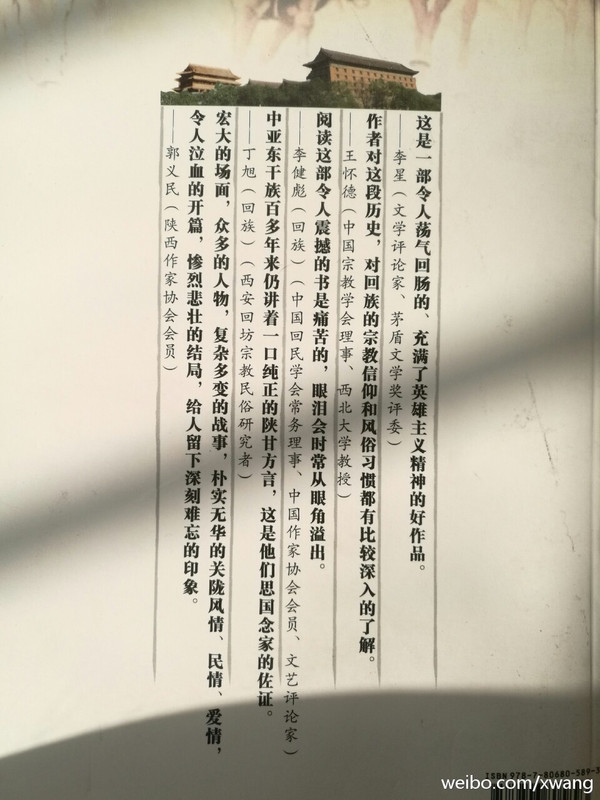 这是一部令人荡气回肠的、充满了英雄主义精神的好作品。
——李星（文学评论家、茅盾文学奖评委）
作者对这段历史，对回族的宗教信仰和风俗习惯都有比较深入的了解。
——王怀德（中国宗教学会理事、西北大学教授）
阅读这部令人震撼的书是痛苦的，眼泪会时常从眼角溢出。
——李健彪（回族）（中国回民学会常务理事、中国作家协会会员、文艺评论家）
中亚东干族百多年来仍讲着一口纯正的陕甘方言，这是他们思国念家的佐证。
——丁旭（回族）（西安回坊宗教民俗研究者）
宏大的场面，众多的人物，复杂多变的战事，朴实无华的关陇风情、民情、爱情，
令人泣血的开篇，惨烈悲壮的结局，给人留下深刻难忘的印象。
——郭义民（陕西作家协会会员）
ISBN 978-7-80680-589-3
weibo.com/xwang